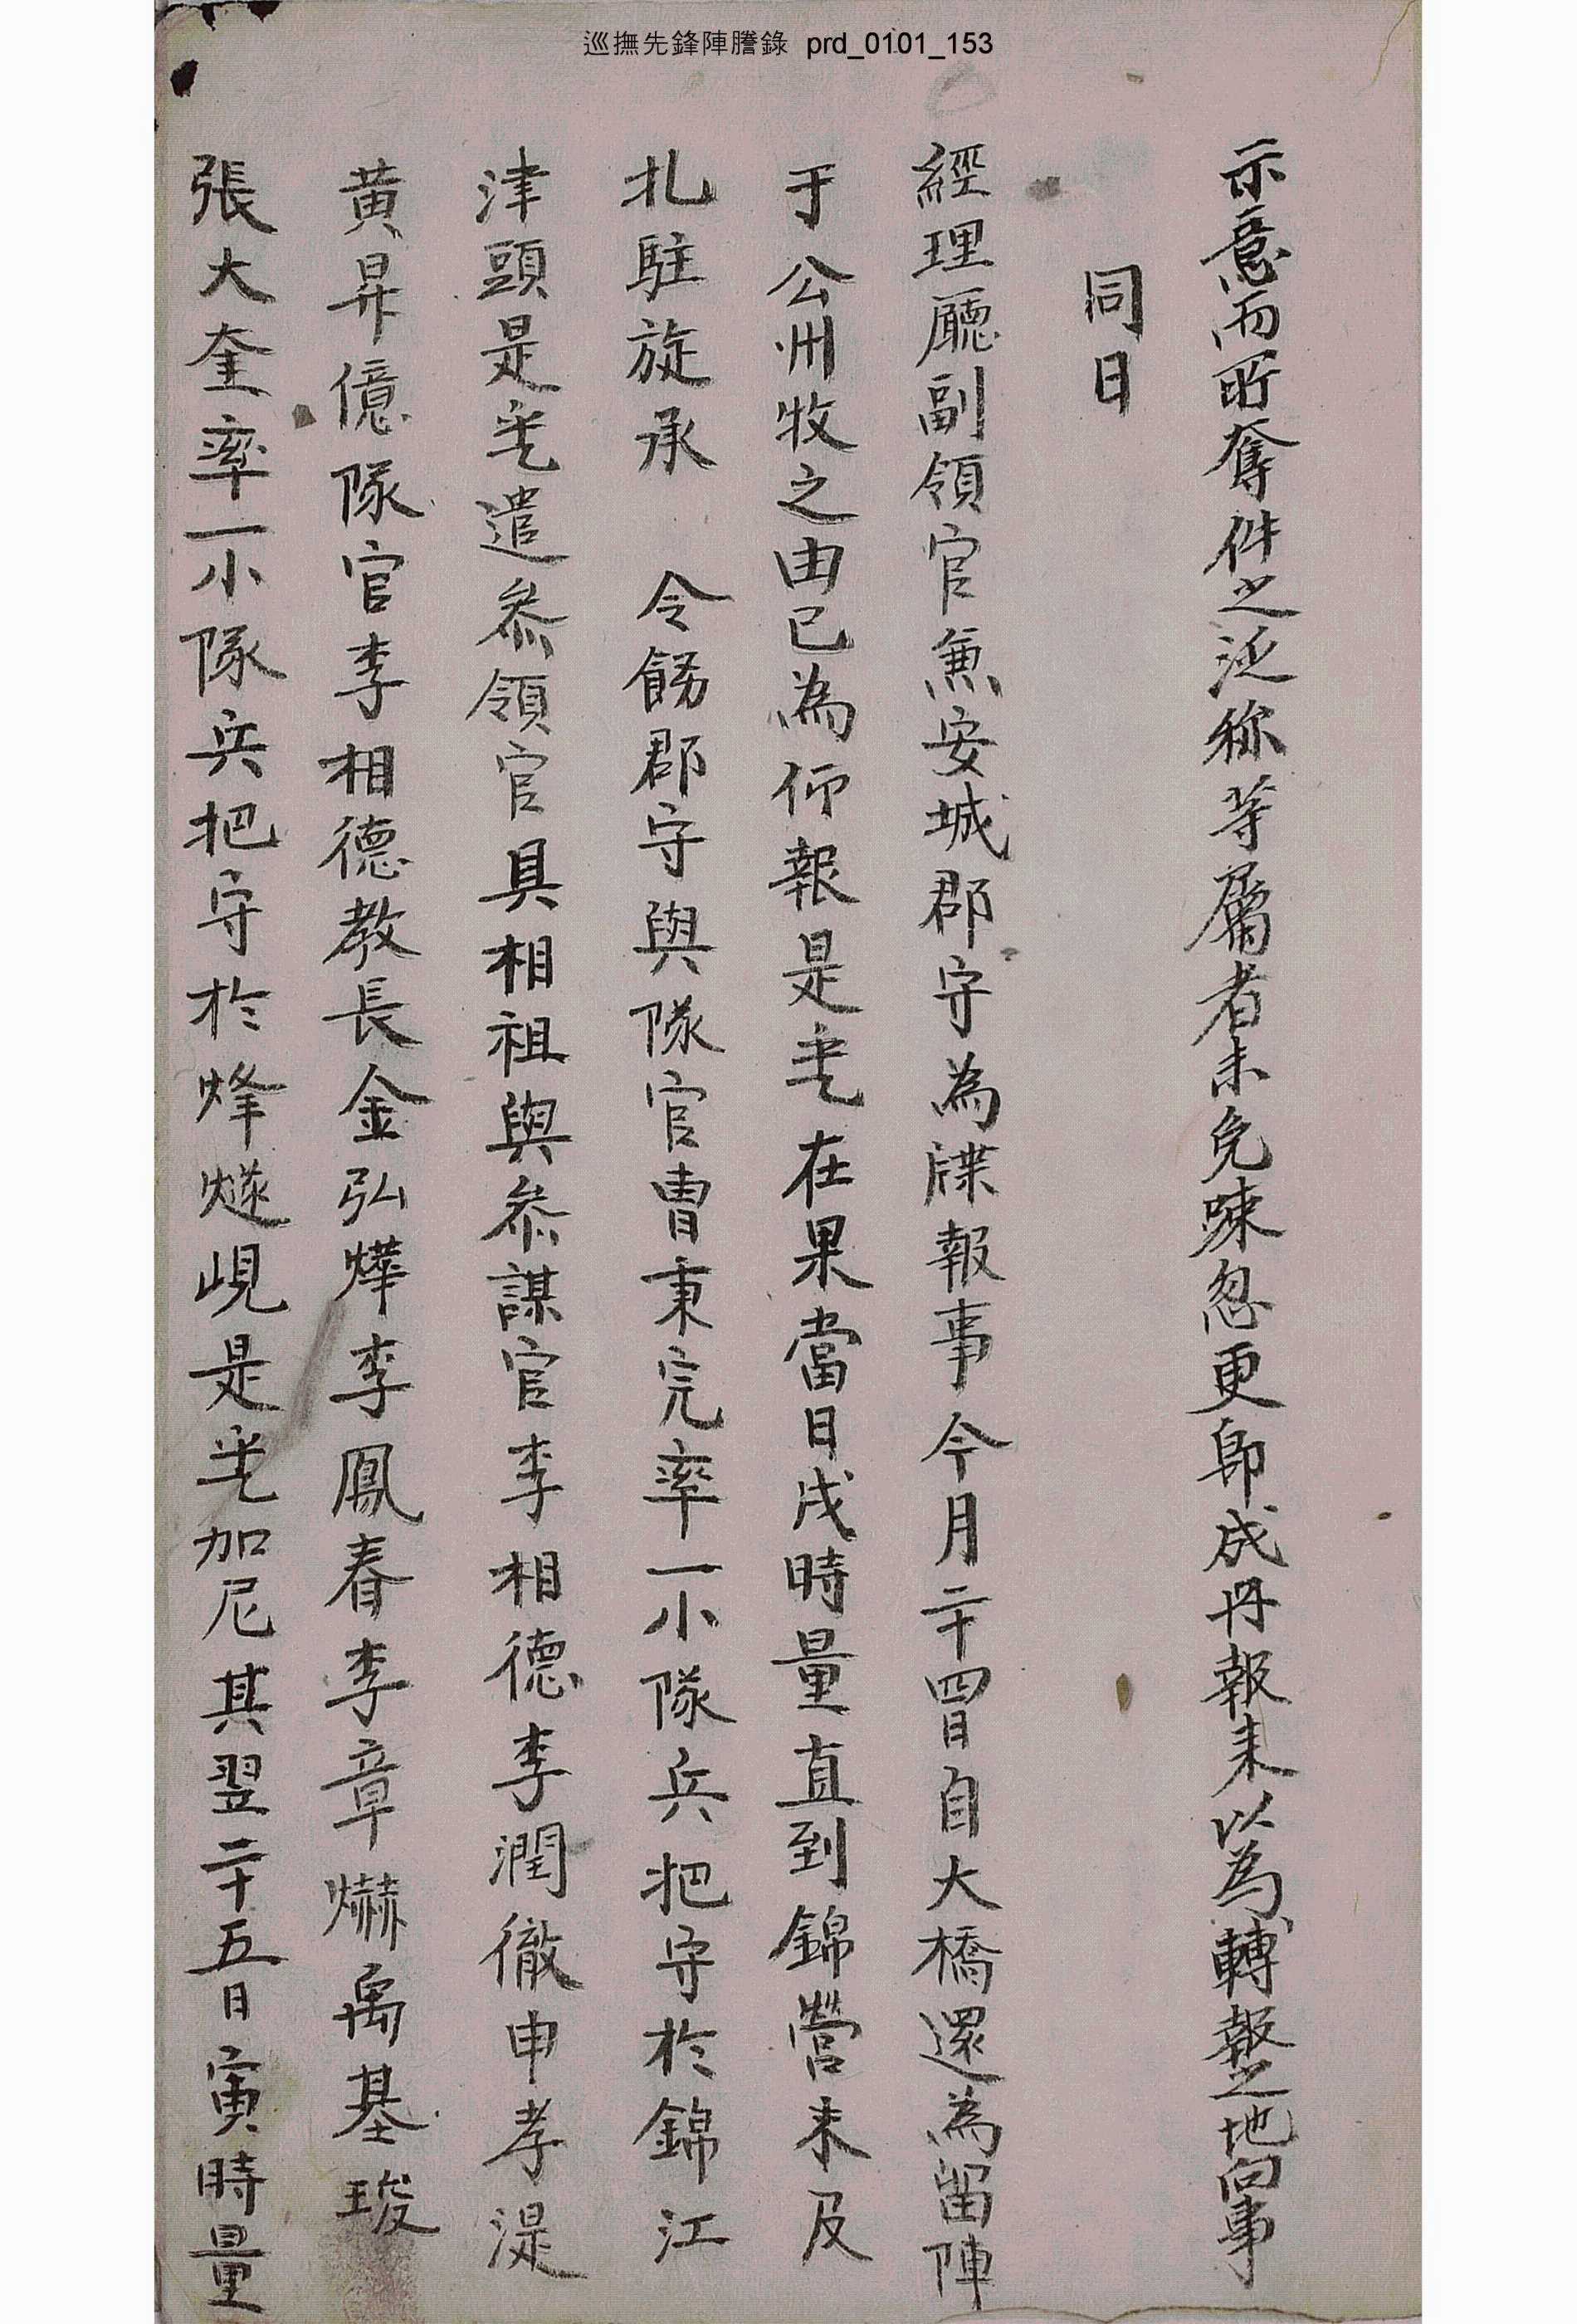 巡撫先鋒陣謄錄 prd_0101_153
示意而所奪件之泛称等屬者未免疎忽更卽成冊報来以為轉報之地向事
同日
經理廳副領官兼安城郡守為牒報事今月二十四日自大橋還為留陣
于公州牧之由已為仰報是乎在果當日戌時量直到錦營未及
扎駐旋承 令飭郡守與隊官曺秉完率一小隊兵把守於錦江
津頭是乎遣叅領官具相祖與叅謀官李相德李潤徹申孝湜
黃昇億隊官李相德敎長金弘燁李鳳春李章爀禹基埈
張大奎率一小隊兵把守於烽燧峴是乎加尼其翌二十五日寅時量